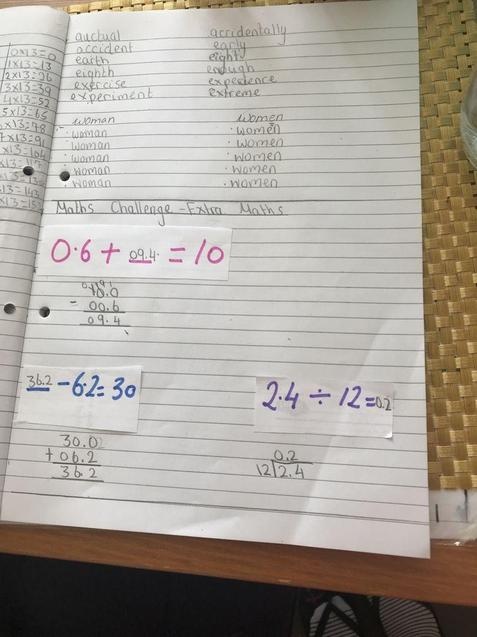 0x13=0
1x13=13
2x13=26
3x13=39
4x13=52
5x13=65
x13=78
7x13=91
x13=104
auctual accidentally
accident early
earth eight
eighth enough
exercise experience
experiment extreme
woman women
woman women
woman women
woman women
woman women
woman women
Maths Challenge - Extra Maths
0.6 + 09.4 = 10
10.0
- 00.6
09.4
36.2 - 6.2 = 30
30.0
+ 06.2
36.2
2.4 ÷ 12 = 0.2
0.2
12 2.4